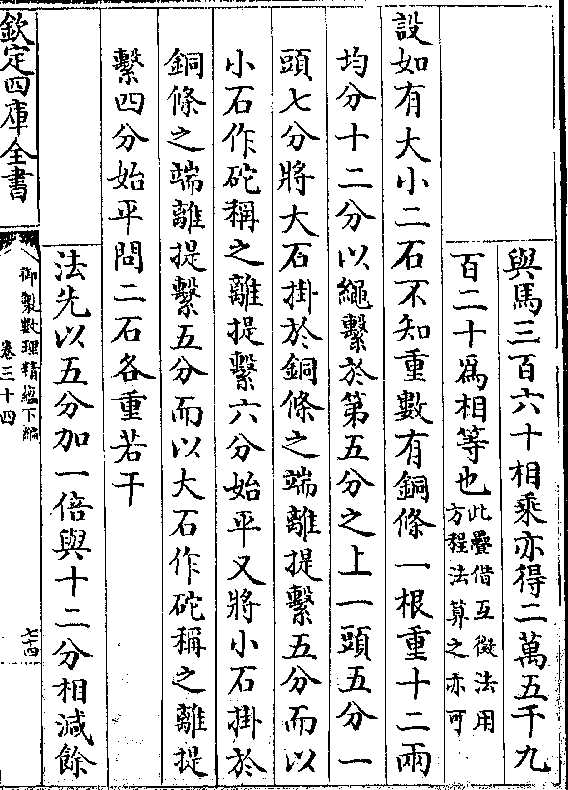 與馬三百六十相乘亦得二萬五千九
百二十爲相等也此疊借互徵法用
方程法算之亦可
設如有大小二石不知重數有銅條一根重十二兩
均分十二分以繩繫於第五分之上一頭五分一
頭七分將大石掛於銅條之端離提繫五分而以
小石作砣稱之離提繫六分始平又將小石掛於
銅條之端離提繫五分而以大石作砣稱之離提
繫四分始平問二石各重若干
法先以五分加一倍與十二分相減餘
欽定四庫全書
御製數理精蘊下編
卷三十四
七四